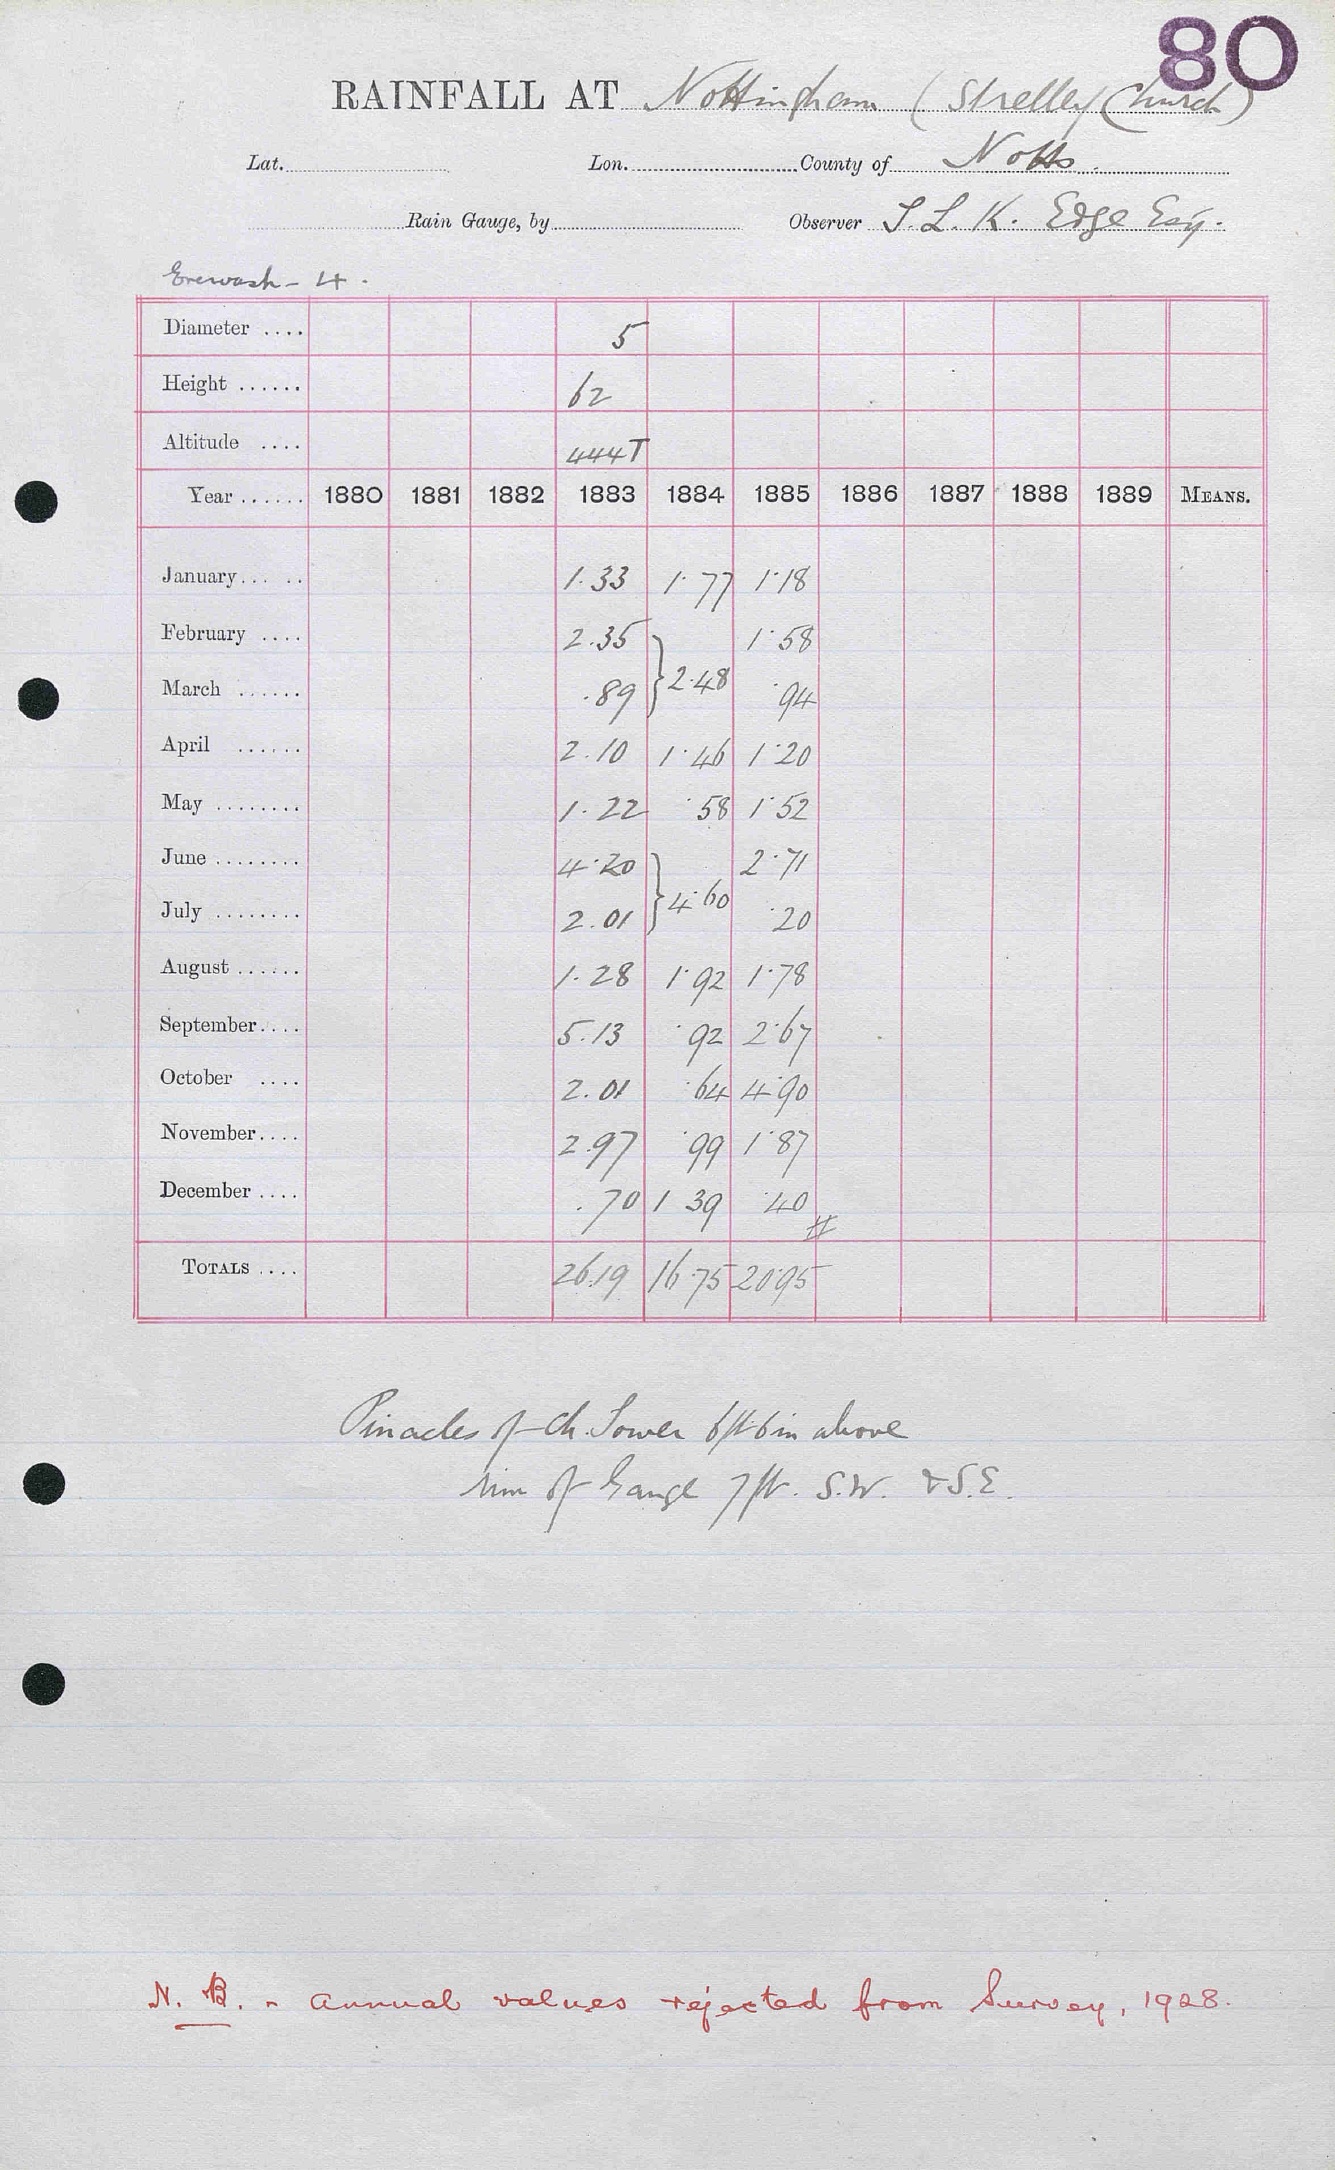 80
RAINFALL AT Nottingham (Strelley Church)
Lat. Lon. County of Notts.
Rain Gauge, by Observer T. L. K. Edge Esq.
Erewash - 4.
Diameter .... 5
Height ...... 62
Altitude .... 444T
Year ...... 1880 1881 1882 1883 1884 1885 1886 1887 1888 1889 MEANS.
January... .. 1.33 1.77 1.18
February .... 2.35 1.58
March ...... .89 } 2.48 .94
April ...... 2.10 1.46 1.20
May ........ 1.22 .58 1.52
June ........ 4.20 2.71
July ........ 2.01 } 4.60 .20
August ...... 1.28 1.92 1.78
September.... 5.13 .92 2.67
October .... 2.01 .64 4.90
November.... 2.97 .99 1.87
December .... .70 1 39 .40 #
TOTALS .... 26.19 16.75 20.95
Pinacles of Ch. Tower 6ft 6in above
rim of Gauge 7ft. S.W. & S.E.
N. B. - Annual values rejected from Survey, 1928.